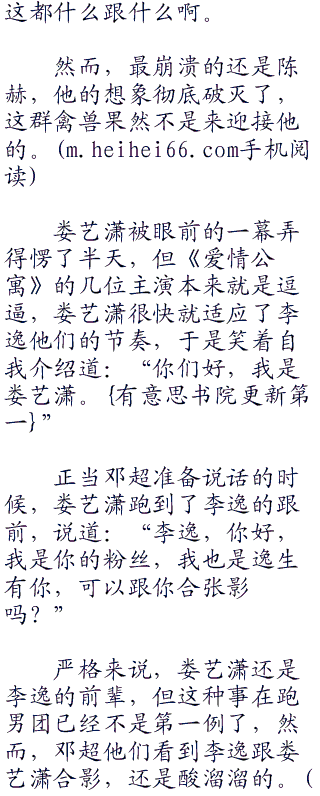 这都什么跟什么啊。
然而，最崩溃的还是陈
赫，他的想象彻底破灭了，
这群禽兽果然不是来迎接他
的。(m.heihei66.com手机阅
读)
娄艺潇被眼前的一幕弄
得愣了半天，但《爱情公
寓》的几位主演本来就是逗
逼，娄艺潇很快就适应了李
逸他们的节奏，于是笑着自
我介绍道：“你们好，我是
娄艺潇。{有意思书院更新第
一}”
正当邓超准备说话的时
候，娄艺潇跑到了李逸的跟
前，说道：“李逸，你好，
我是你的粉丝，我也是逸生
有你，可以跟你合张影
吗？”
严格来说，娄艺潇还是
李逸的前辈，但这种事在跑
男团已经不是第一例了，然
而，邓超他们看到李逸跟娄
艺潇合影，还是酸溜溜的。(